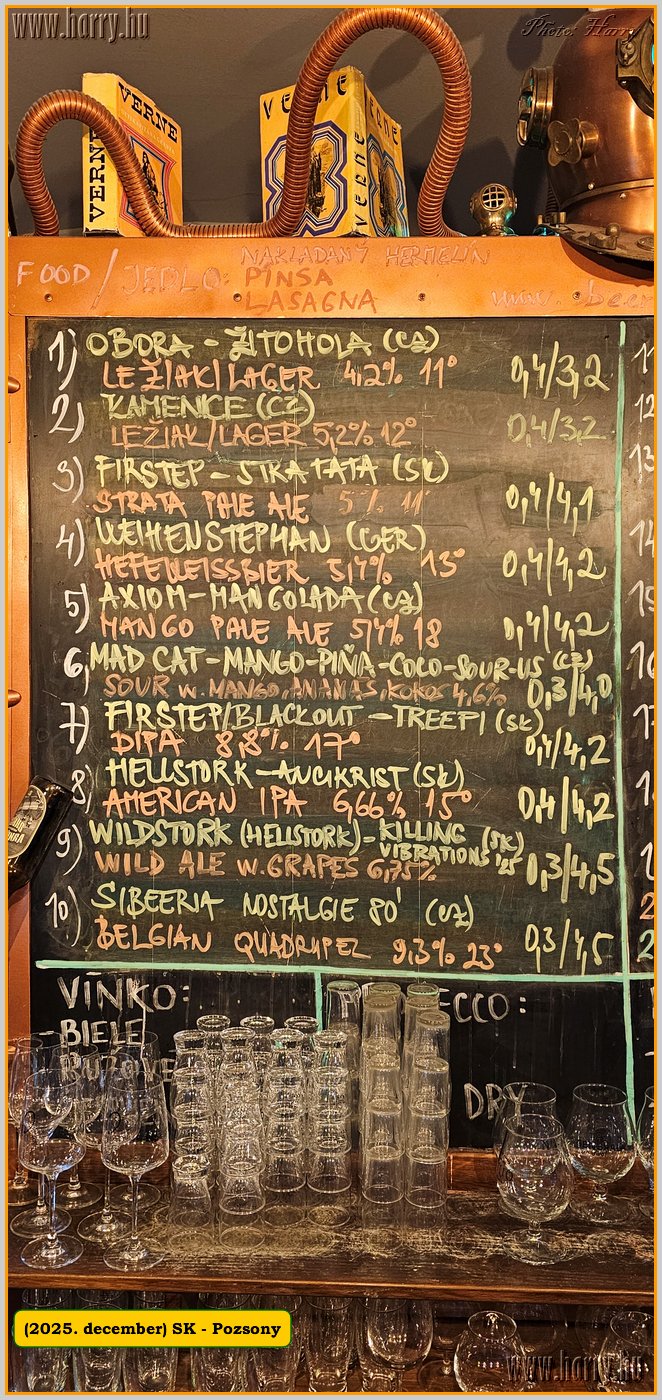 www.harry.hu
Photo: Harry
VERNE
VERNE
VERNE
VERNE
Verne
FOOD / JEDLO: NAKLADANÝ HERMELÍN
PINSA
LASAGNA
www.beer
1) OBORA - ŽITOHOLA (CZ)
LEŽIAK/LAGER 4,2% 11° 0,4/3,2
2) KAMENICE (CZ)
LEŽIAK/LAGER 5,2% 12° 0,4/3,2
3) FIRSTEP - STRATATA (SK)
STRATA PALE ALE 5% 11° 0,4/4,1
4) WEIHENSTEPHAN (GER)
HEFEWEISSBIER 5,4% 13° 0,4/4,2
5) AXIOM - MANGOLADA (CZ)
MANGO PALE ALE 5,4% 18 0,4/4,2
6) MAD CAT - MANGO-PIÑA-COCO-SOUR-US (CZ)
SOUR W. MANGO, ANANAS, KOKOS 4,6% 0,3/4,0
7) FIRSTEP/BLACKOUT - TREEPI (SK)
DIPA 8,8% 17° 0,4/4,2
8) HELLSTORK - ANCIKRIST (SK)
AMERICAN IPA 6,66% 15° 0,4/4,2
9) WILDSTORK (HELLSTORK) - KILLING (SK)
VIBRATIONS '25
WILD ALE W. GRAPES 6,75% 0,3/4,5
10) SIBEERIA NOSTALGIE 80' (CZ)
BELGIAN QUADRUPEL 9,3% 23° 0,3/4,5
VÍNKO:
- BIELE
RUŽOVÉ
DRY
(2025. december) SK - Pozsony
www.harry.hu